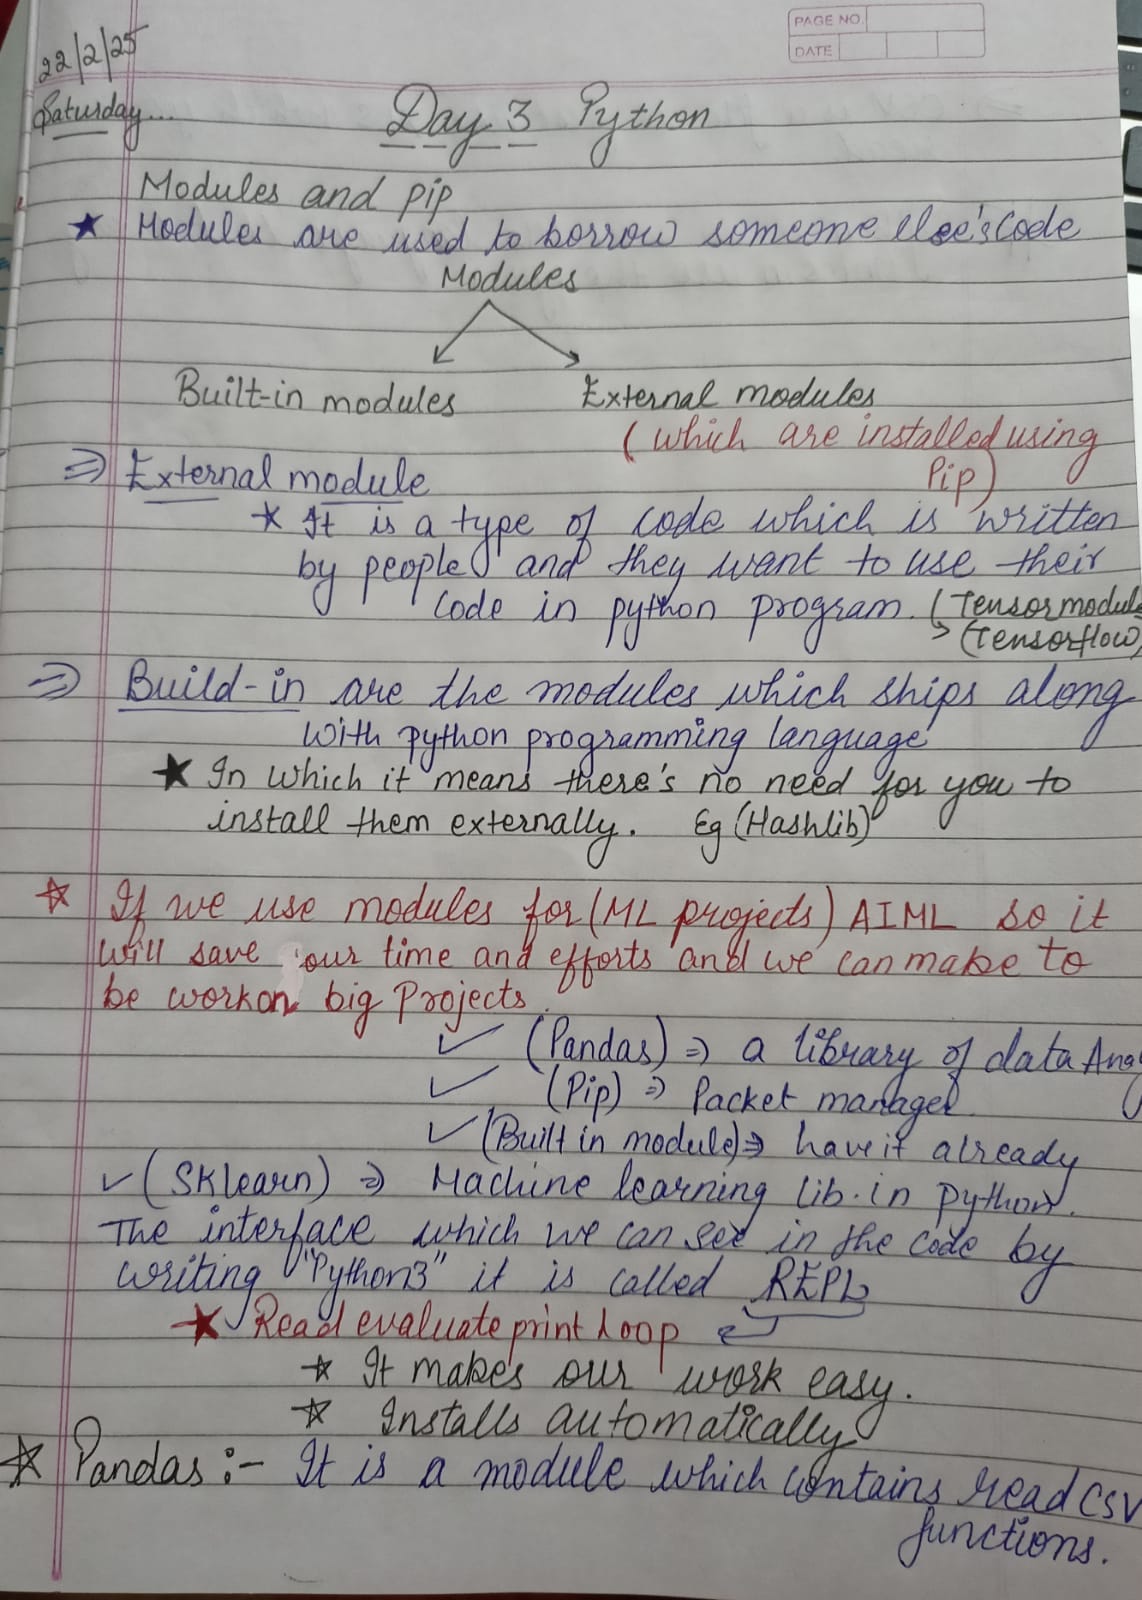 PAGE NO.
DATE
22/2/25
Saturday...
Day 3 Python
Modules and pip
★ Modules are used to borrow someone else's code
Modules
Built-in modules External modules
(which are installed using
Pip)
⇒ External module
* It is a type of code which is written
by people and they want to use their
code in python program. (Tensor module
→ (Tensorflow)
⇒ Build-in are the modules which ships along
with python programming language
★ In which it means there's no need for you to
install them externally. Eg (Hashlib)
☆ If we use modules for (ML projects) AIML so it
will save our time and efforts and we can make to
be work on big Projects.
✓ (Pandas) ⇒ a library of data Analy
✓ (Pip) ⇒ Packet manager
✓ (Built in module) ⇒ have it already
✓ (SKlearn) ⇒ Machine learning lib. in python.
The interface which we can see in the code by
writing "Python3" it is called REPL
★ Read evaluate print Loop ↵
☆ It makes our work easy.
☆ Installs automatically
☆ Pandas :- It is a module which contains read CSV
functions.